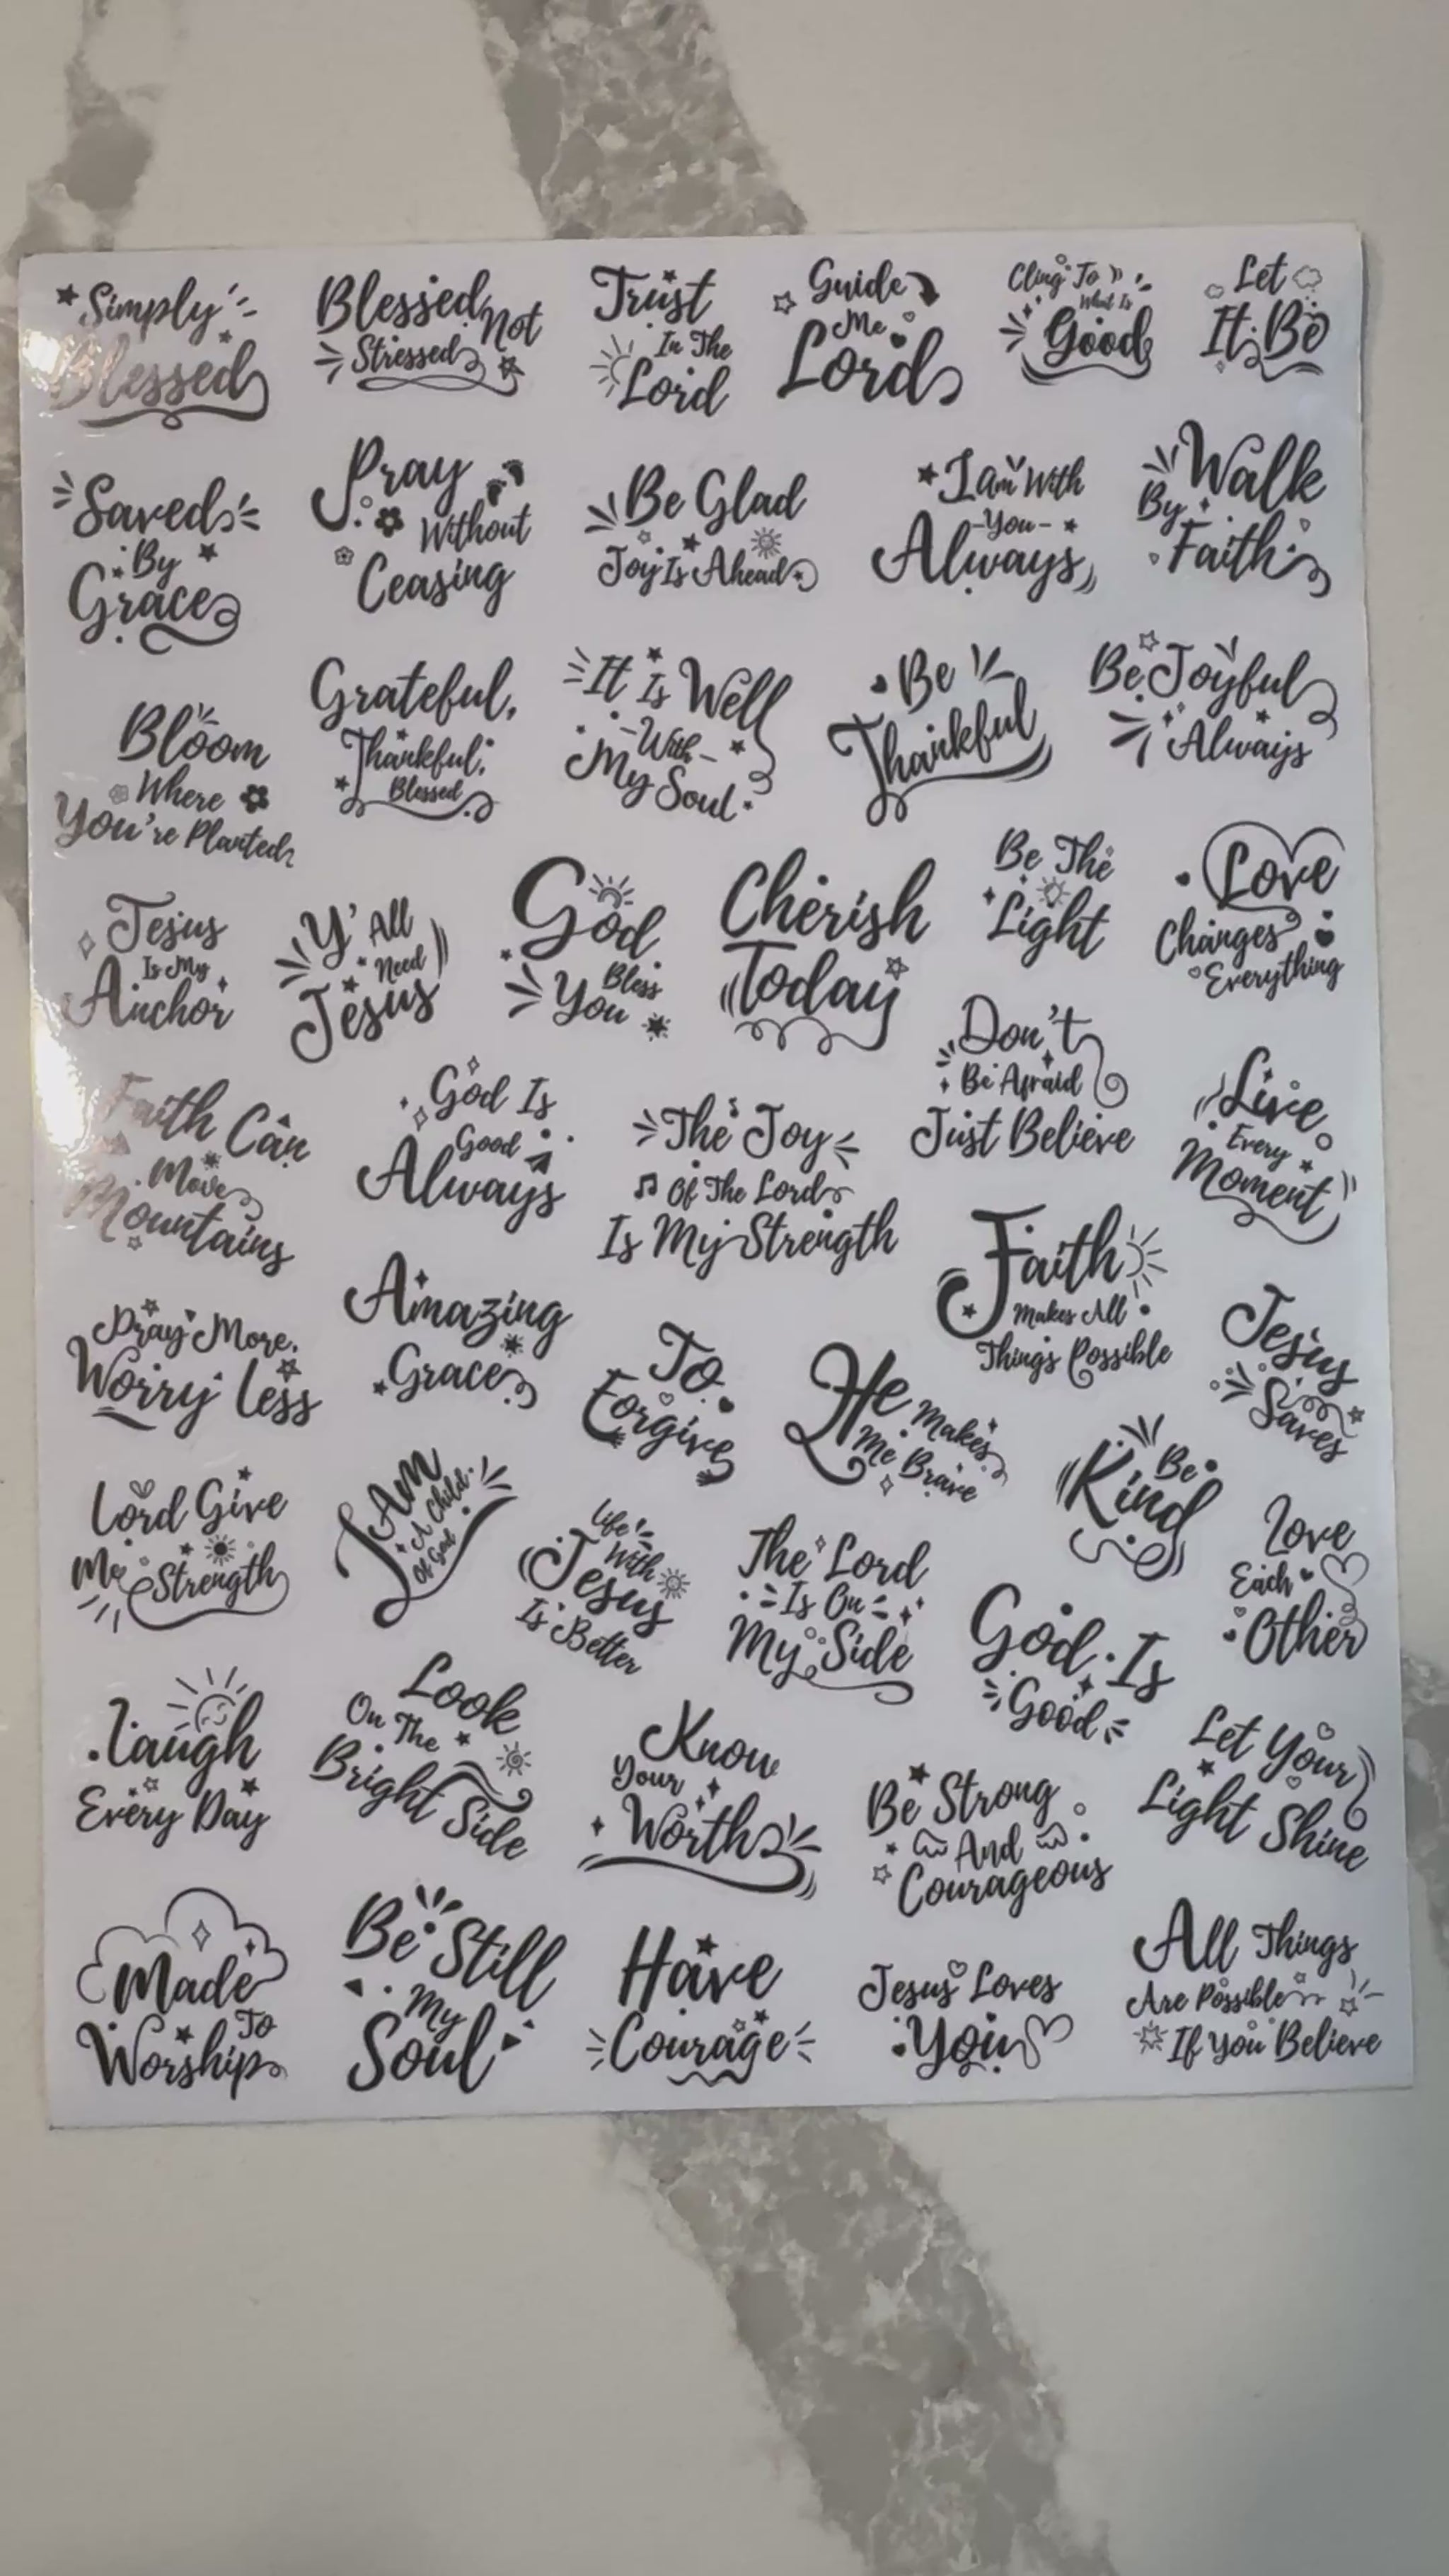 Simply
Blessed
Blessed Not
Stressed
Trust
In The
Lord
Guide
Me
Lord
Cling To
What Is
Good
Let
It Be
Saved
By
Grace
Pray
Without
Ceasing
Be Glad
Joy Is Ahead
I am With
-You-
Always
Walk
By
Faith
Bloom
Where
You're Planted
Grateful,
Thankful,
Blessed
It Is Well
-With-
My Soul
Be
Thankful
Be Joyful
Always
Jesus
Is My
Anchor
Y'All
Need
Jesus
God
Bless
You
Cherish
Today
Be The
Light
Love
Changes
Everything
Faith Can
Move
Mountains
God Is
Good
Always
The Joy
Of The Lord
Is My Strength
Don't
Be Afraid
Just Believe
Live
Every
Moment
Pray More,
Worry Less
Amazing
Grace
To
Forgive
He Makes
Me Brave
Faith
Makes All
Things Possible
Jesus
Saves
Lord Give
Me Strength
I Am
A Child
Of God
Life
With
Jesus
Is Better
The Lord
Is On
My Side
Be
Kind
Love
Each
Other
God Is
Good
Laugh
Every Day
Look
On The
Bright Side
Know
Your
Worth
Be Strong
And
Courageous
Let Your
Light Shine
Made
To
Worship
Be Still
My
Soul
Have
Courage
Jesus Loves
You
All Things
Are Possible
If You Believe